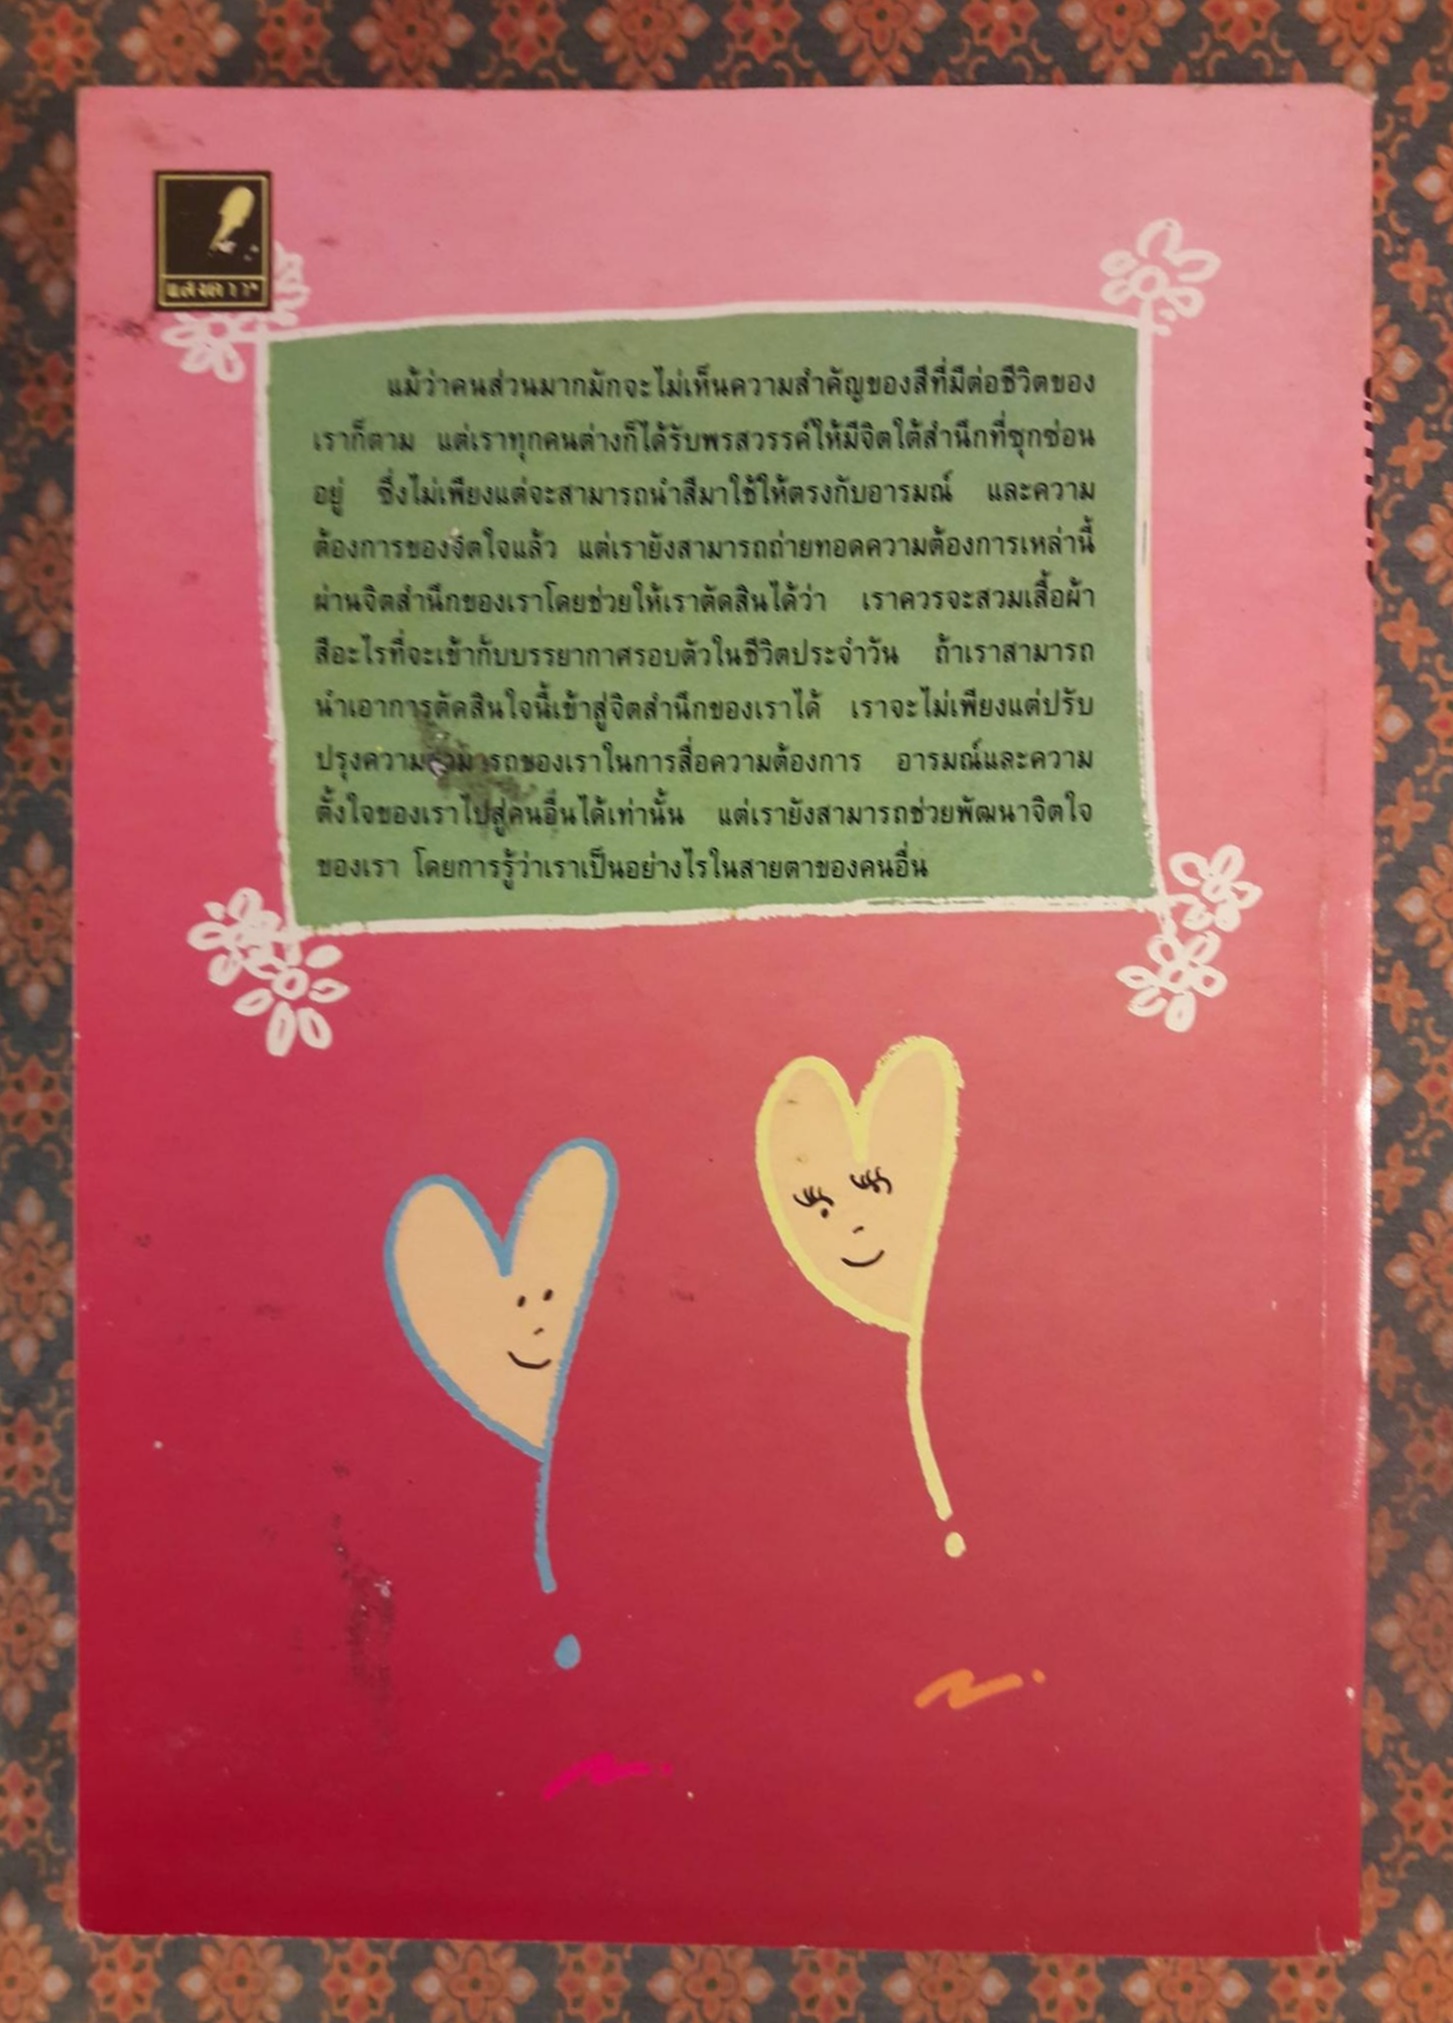 แสงดาว
แม้ว่าคนส่วนมากมักจะไม่เห็นความสำคัญของสีที่มีต่อชีวิตของ
เราก็ตาม แต่เราทุกคนต่างก็ได้รับพรสวรรค์ให้มีจิตใต้สำนึกที่ซุกซ่อน
อยู่ ซึ่งไม่เพียงแต่จะสามารถนำสีมาใช้ให้ตรงกับอารมณ์ และความ
ต้องการของจิตใจแล้ว แต่เรายังสามารถถ่ายทอดความต้องการเหล่านี้
ผ่านจิตสำนึกของเราโดยช่วยให้เราตัดสินได้ว่า เราควรจะสวมเสื้อผ้า
สีอะไรที่จะเข้ากับบรรยากาศรอบตัวในชีวิตประจำวัน ถ้าเราสามารถ
นำเอาการตัดสินใจนี้เข้าสู่จิตสำนึกของเราได้ เราจะไม่เพียงแต่ปรับ
ปรุงความสามารถของเราในการสื่อความต้องการ อารมณ์และความ
ตั้งใจของเราไปสู่คนอื่นได้เท่านั้น แต่เรายังสามารถช่วยพัฒนาจิตใจ
ของเรา โดยการรู้ว่าเราเป็นอย่างไรในสายตาของคนอื่น